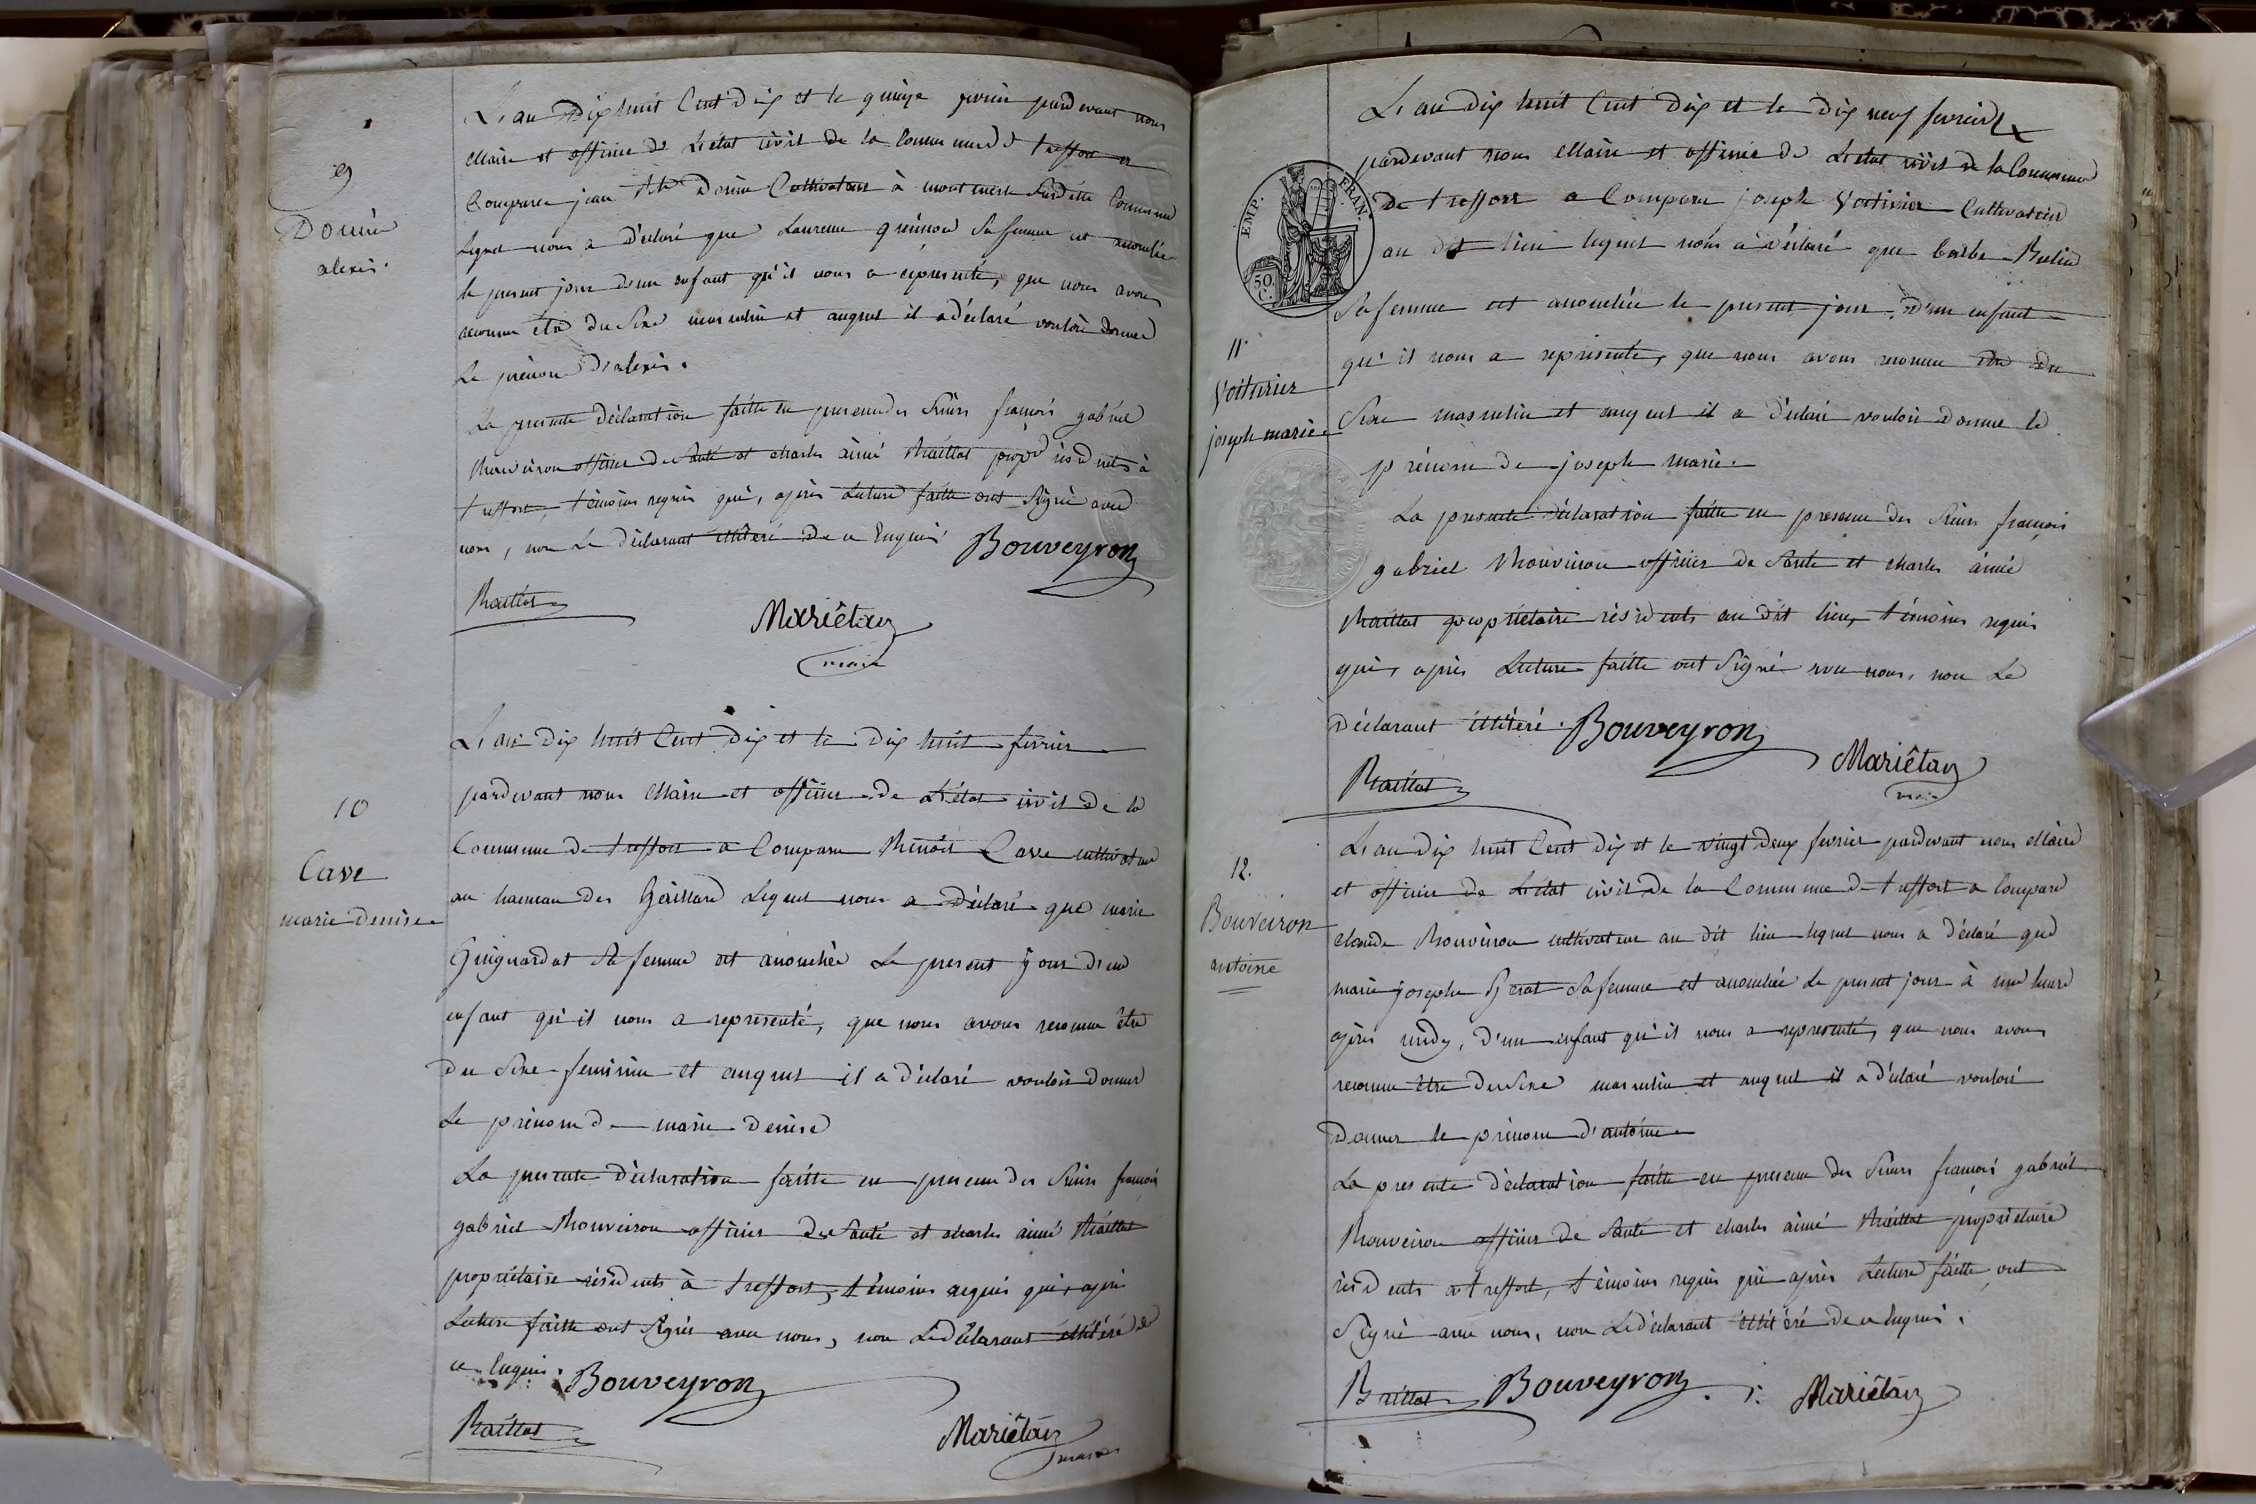 9
Domine
alexis.
L'an Dix huit Cent Dix et le quinze fevrier pardevant nous
Maire et officier de L'état civil de la Commune de treffort a
Comparu jean Domine Cultivateur à Commune
Lequel nous a Déclaré que Laurence sa femme est accouchée
le present jour d'un enfant qu'il nous a representé, que nous avons
reconnu etre du Sexe masculin et auquel il a déclaré vouloir donner
Le prénom D'alexis.
La presente Déclaration faitte en presence des Sieurs françois gabriel
Bouveiron officier de Santé et charles aimé Baillat prop.re résidents à
treffort, témoins requis qui, après Lecture faitte ont Signé avec
nous, non Le déclarant illitéré De ce Enquis
Bouveyron
Baillat
Mariêtan
maire
10
Cave
marie denise
L'an Dix huit Cent Dix et le Dix huit fevrier
pardevant nous Maire et officier de L'état civil De la
Commune De treffort a Comparu Benoit Cave cultivateur
au hameau des Gaillard Lequel nous a Déclaré que marie
Guignardat Sa femme est accouchée Le present jour D'un
enfant qu'il nous a representé, que nous avons reconnu être
Du Sexe feminin et auquel il a déclaré vouloir donner
Le prénom De marie Denise
La presente Déclaration faitte en presence des Sieurs françois
gabriel Bouveiron officier de Santé et charles aimé Baillat
propriétaire résidents à treffort, témoins requis qui, après
Lecture faitte ont Signé avec nous, non Le Déclarant illitéré de
ce Enquis.
Bouveyron
Baillat
Mariêtan
maire
EMP. FRAN.
50
C.
11
Voiturier
joseph marie
L'an dix huit Cent Dix et le Dix neuf fevrier
pardevant nous Maire et officier de L'etat civil de la Commune
De treffort a Comparu joseph Voiturier Cultivateur
au dit lieu lequel nous a déclaré que barbe Bulin
Sa femme est accouchée le present jour D'un enfant
qu'il nous a representé, que nous avons reconnu etre du
Sexe masculin et auquel il a déclaré vouloir Donner le
prénom de joseph marie.
La presente Déclaration faitte en presence des Sieurs françois
gabriel Bouveiron officier de Santé et charles aimé
Baillat propriétaire résidents au dit lieu, témoins requis
qui, après Lecture faitte ont Signé avec nous, non Le
Déclarant illitéré.
Bouveyron
Mariêtan
maire
Baillat
12.
Bouveiron
antoine
L'an dix huit Cent dix et le vingt deux fevrier pardevant nous Maire
et officier de L'état civil de la Commune de treffort a Comparu
claude Bouveiron cultivateur au dit lieu lequel nous a déclaré que
marie josephe Sa femme est accouchée Le present jour à une heure
après midy, d'un enfant qu'il nous a representé, que nous avons
reconnu être du Sexe masculin et auquel il a déclaré vouloir
Donner le prénom d'antoine
La presente déclaration faitte en presence des Sieurs françois gabriel
Bouveiron officier de Santé et charles aimé Baillat propriétaire
résidents à treffort, témoins requis qui après Lecture faitte ont
Signé avec nous, non Le déclarant illitéré de ce Enquis.
Baillat
Bouveyron
Mariêtan